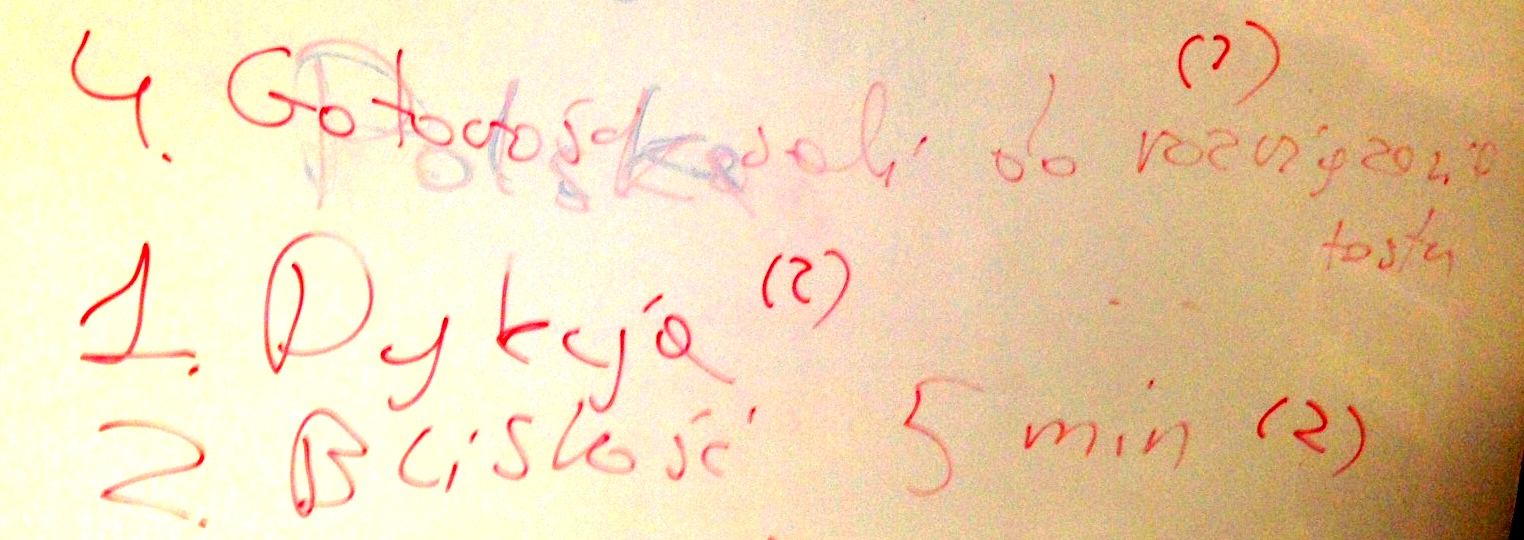 4. do rozwiązania
testu
1. Dykcja (2)
2. Bliskość 5 min (2)